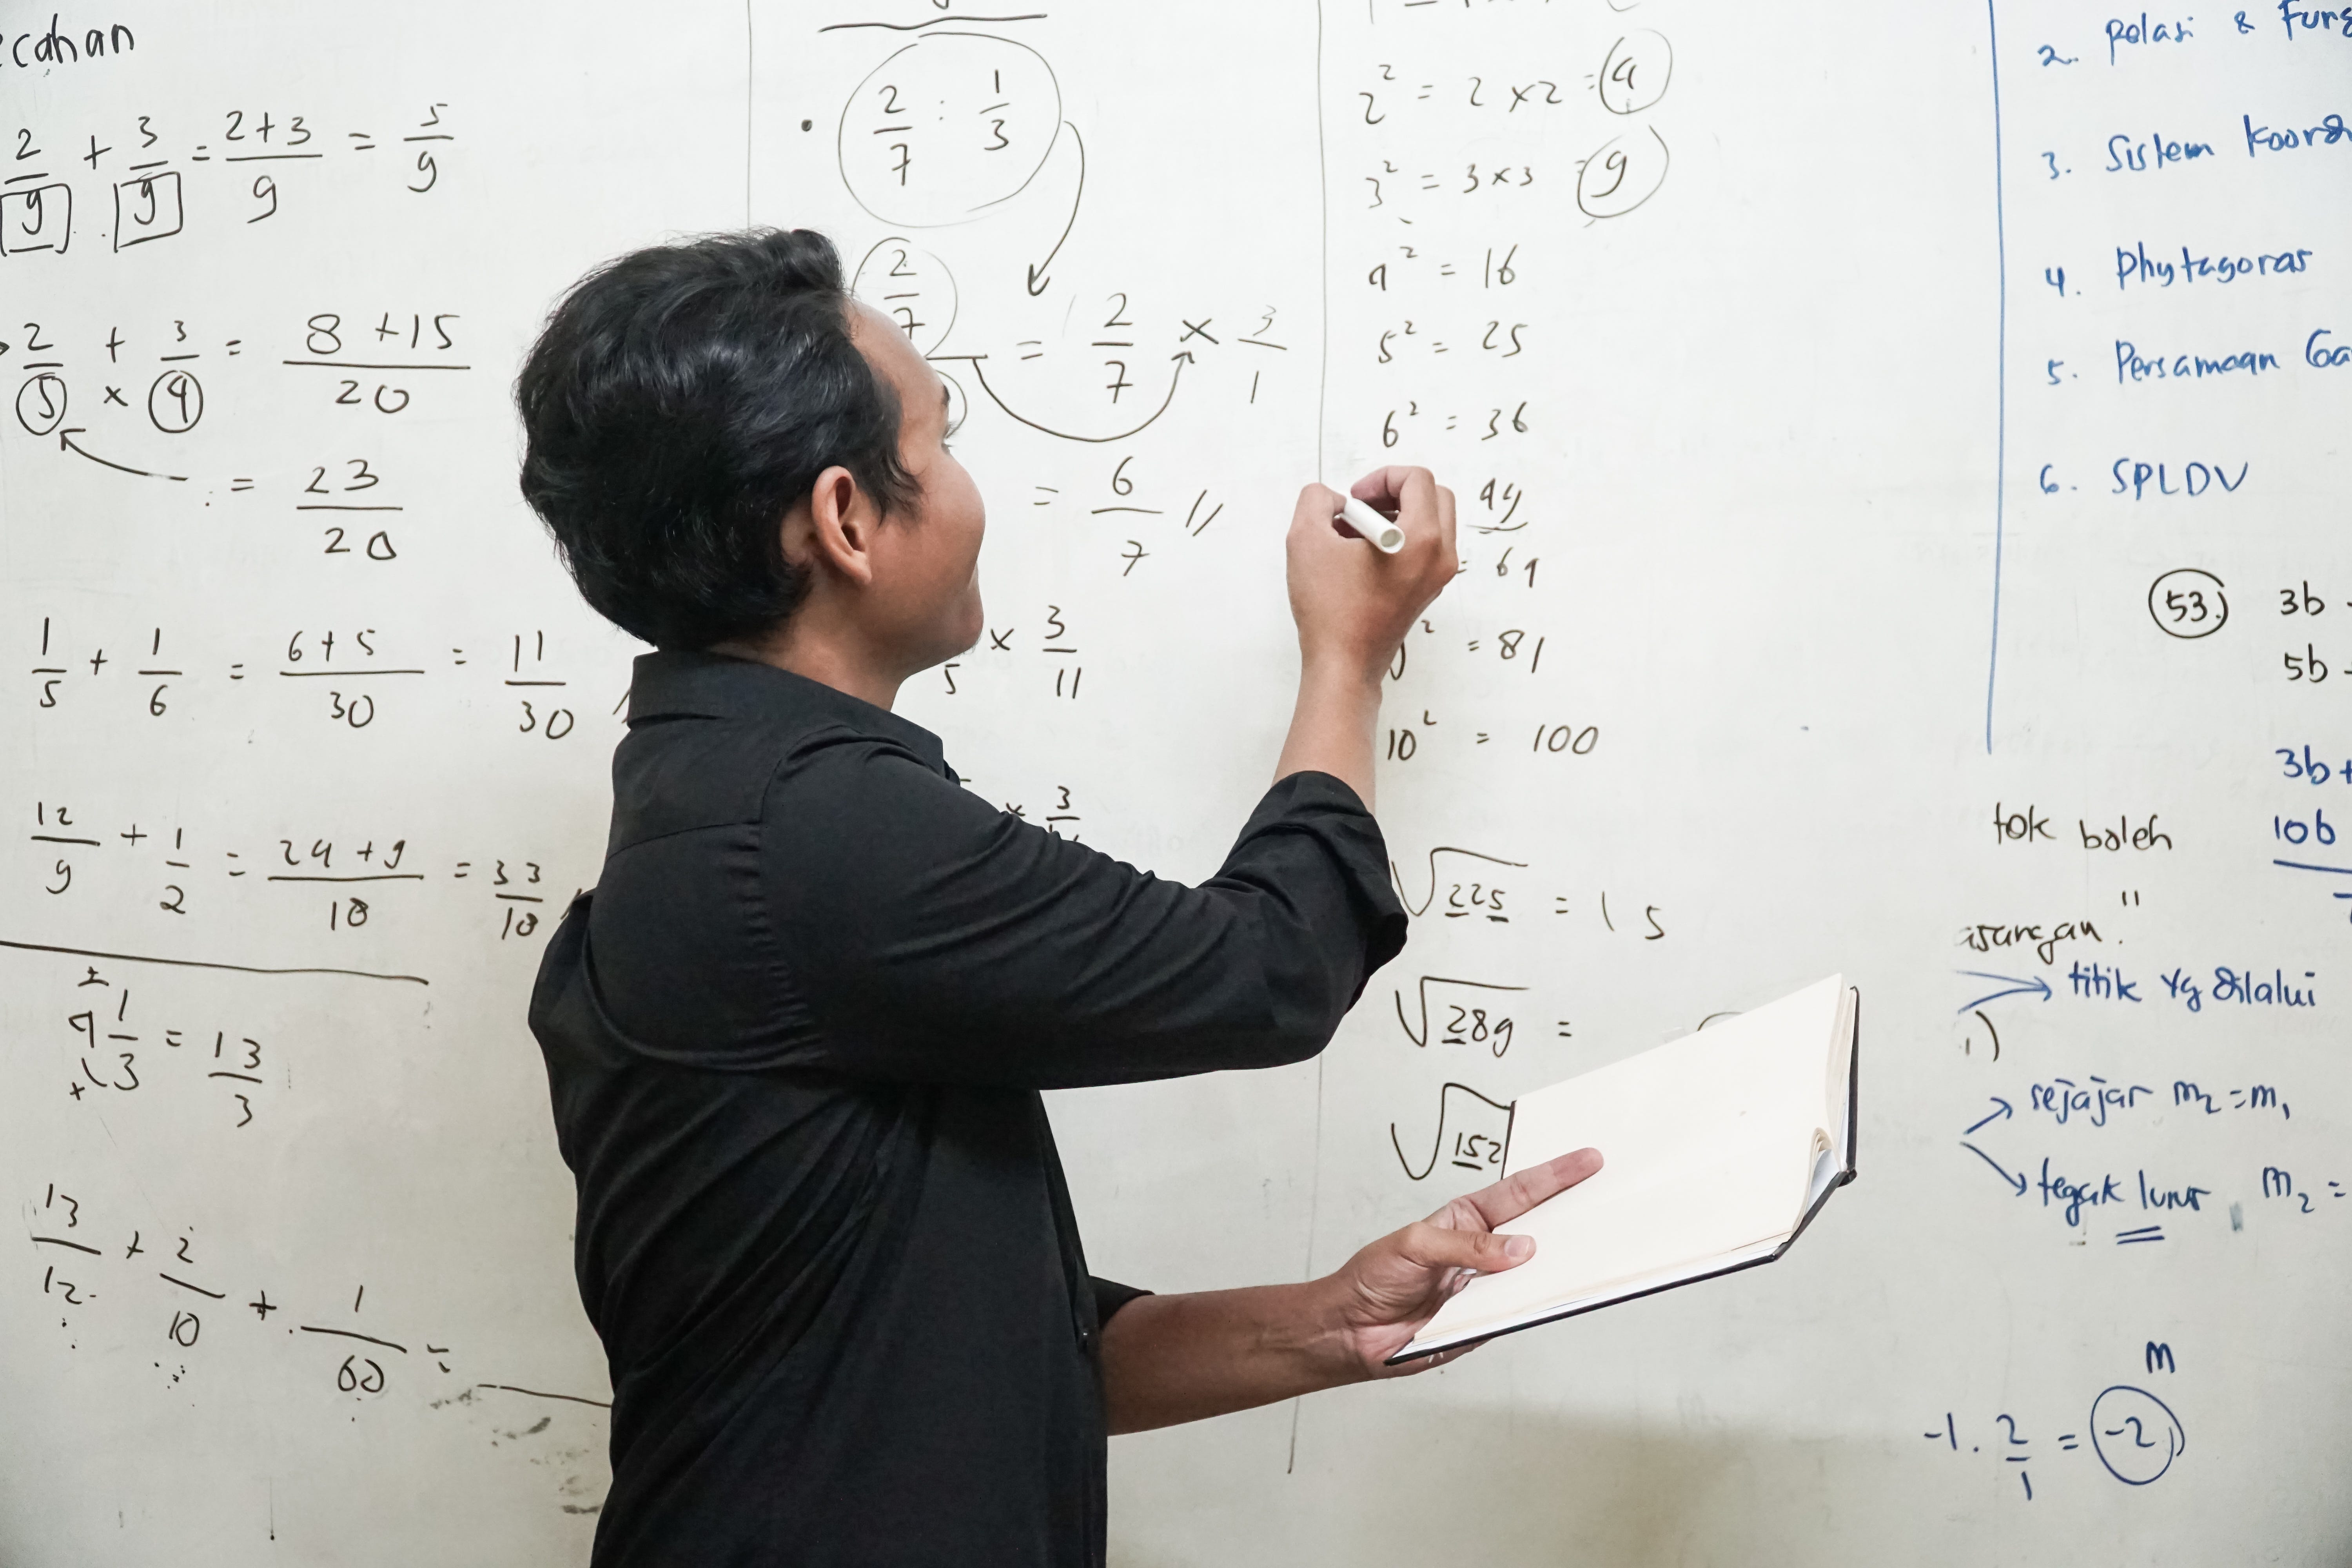 ecahan
2/9 + 3/9 = 2+3/9 = 5/9
2/5 + 3/4 = 8+15/20
×
= 23/20
1/5 + 1/6 = 6+5/30 = 11/30
12/9 + 1/2 = 24+9/18 = 33/18
+
4 1/3 = 13/3
×
13/12 + 2/10 + 1/60 =
2/7 : 1/3
2/7 = 2/7 × 3/1
= 6/7 //
5 × 3/11
× 3
2² = 2 × 2 = 4
3² = 3 × 3 = 9
4² = 16
5² = 25
6² = 36
49
= 64
² = 81
10² = 100
√225 = 15
√289 =
√152
2. Relasi & Fung
3. Sistem Koord
4. Phytagoras
5. Persamaan Ga
6. SPLDV
53. 3b
5b
3b+
10b
tok boleh
asangan."
titik yg dilalui
sejajar m₂=m₁
tegak lurus m₂ =
m
-1 . 2/1 = -2